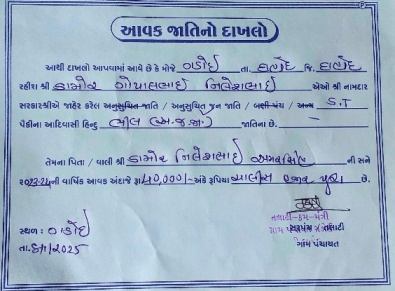 આવક જાતિનો દાખલો
આથી દાખલો આપવામાં આવે છે કે મોજે વડોદ તા. દાહોદ જિ. દાહોદ
રહીશ શ્રી ડામોર ગોપાલભાઈ નિલેશભાઈ એઓ શ્રી નામદાર
સરકારશ્રીએ જાહેર કરેલ અનુસુચિત જાતિ / અનુસુચિત જન જાતિ / બક્ષી પંચ / અન્ય S.T
પૈકીના આદિવાસી હિન્દુ ભીલ (અ.જ.જા.) જાતિના છે.
તેમના પિતા / વાલી શ્રી ડામોર નિલેશભાઈ ની સને
૨૦૨૩-૨૪ની વાર્ષિક આવક અંદાજે રૂા. 40,000/- અંકે રૂપિયા ચાલીસ હજાર પુરા છે.
તલાટી-કમ-મંત્રી
સ્થળ : વડોદ
ગ્રામ પંચાયત
તા. /2025